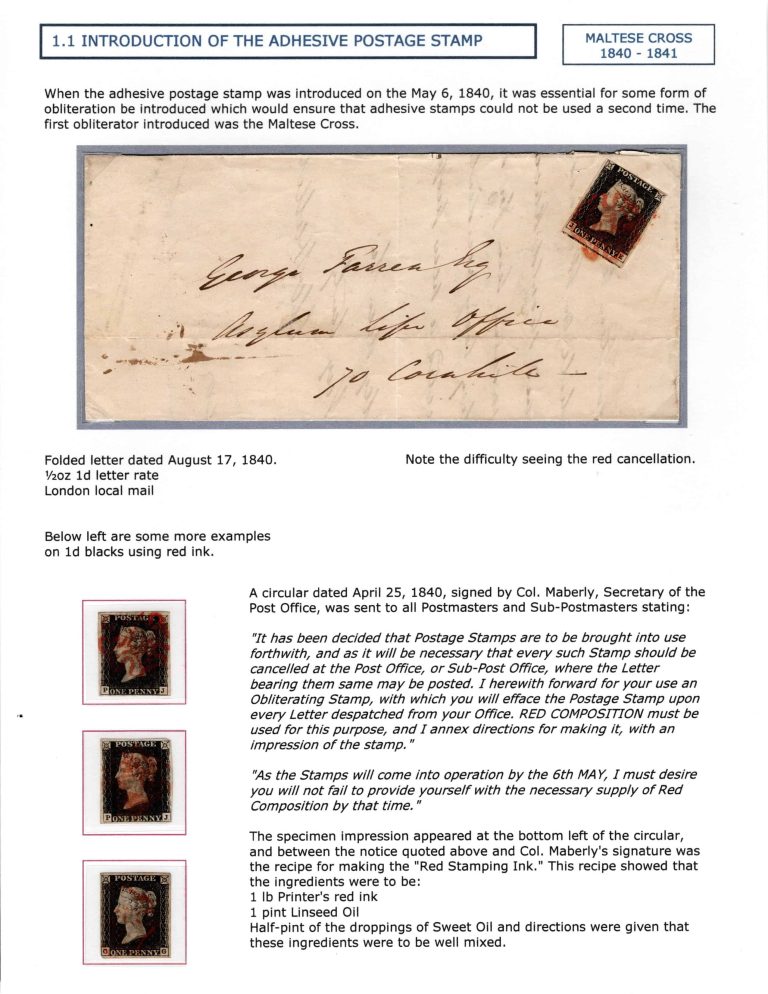 1.1 INTRODUCTION OF THE ADHESIVE POSTAGE STAMP
MALTESE CROSS
1840 - 1841
When the adhesive postage stamp was introduced on the May 6, 1840, it was essential for some form of
obliteration be introduced which would ensure that adhesive stamps could not be used a second time. The
first obliterator introduced was the Maltese Cross.
POSTAGE
ONE PENNY
George Farren Esq
Asylum Life Office
70 Cornhill
Folded letter dated August 17, 1840.
½oz 1d letter rate
London local mail
Note the difficulty seeing the red cancellation.
Below left are some more examples
on 1d blacks using red ink.
POSTAGE
P ONE PENNY J
POSTAGE
P ONE PENNY J
POSTAGE
ONE PENNY G
A circular dated April 25, 1840, signed by Col. Maberly, Secretary of the
Post Office, was sent to all Postmasters and Sub-Postmasters stating:
"It has been decided that Postage Stamps are to be brought into use
forthwith, and as it will be necessary that every such Stamp should be
cancelled at the Post Office, or Sub-Post Office, where the Letter
bearing them same may be posted. I herewith forward for your use an
Obliterating Stamp, with which you will efface the Postage Stamp upon
every Letter despatched from your Office. RED COMPOSITION must be
used for this purpose, and I annex directions for making it, with an
impression of the stamp."
"As the Stamps will come into operation by the 6th MAY, I must desire
you will not fail to provide yourself with the necessary supply of Red
Composition by that time."
The specimen impression appeared at the bottom left of the circular,
and between the notice quoted above and Col. Maberly's signature was
the recipe for making the "Red Stamping Ink." This recipe showed that
the ingredients were to be:
1 lb Printer's red ink
1 pint Linseed Oil
Half-pint of the droppings of Sweet Oil and directions were given that
these ingredients were to be well mixed.